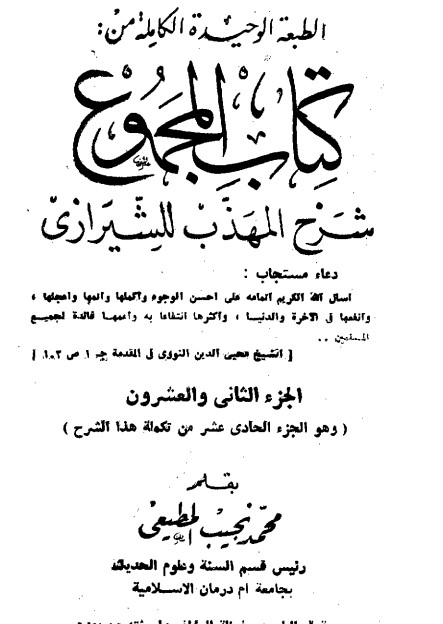 الطبعة الوحيدة الكاملة من:
كتاب المجموع
شرح المهذب للشيرازى
دعاء مستجاب :
اسال الله الكريم اتمامه على احسن الوجوه واكملها واتمها واعجلها ،
وانفعها فى الآخرة والدنيا ، واكثرها انتفاعا به واعمها فائدة لجميع
المسلمين ..
[ الشيخ محيى الدين النووى فى المقدمة جـ ١ ص ١٠٣ ]
الجزء الثانى والعشرون
( وهو الجزء الحادى عشر من تكملة هذا الشرح )
بقلم
محمد نجيب المطيعى
رئيس قسم السنة وعلوم الحديث
بجامعة ام درمان الاسلامية